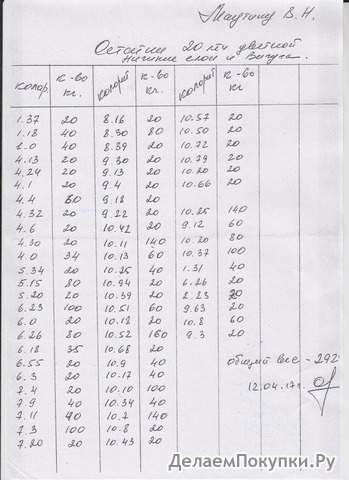 В. Н.
Остатки 20 лти цветной
колор. к-во кг. колорит к-во кг. колорит к-во кг
1.37 20 8.16 20 10.57 20
1.18 40 8.30 80 10.50 20
2.0 40 8.39 20 10.72 20
4.13 20 9.30 20 10.79 20
4.24 20 9.13 20 10.20 20
4.1 20 9.4 20 10.66 20
4.4 60 9.18 20
4.32 20 9.22 20 10.25 140
4.6 20 10.42 20 9.12 60
4.30 20 10.11 140 10.20 80
4.0 34 10.13 60 10.37 100
5.34 20 10.25 40 1.31 40
5.15 80 10.94 20 6.26 20
5.20 20 10.39 20 2.23 20
6.23 100 10.51 60 9.63 20
6.0 20 10.18 20 10.8 60
6.26 80 10.52 160 9.3 20
6.18 35 10.68 20
6.55 20 10.9 40 общий вес - 292
6.3 20 10.17 40
7.4 20 10.10 100 12.04.17г.
7.9 40 10.34 40
7.11 90 10.7 140
7.3 100 10.8 20
7.20 20 10.43 20
ДелаемПокупки.Ру